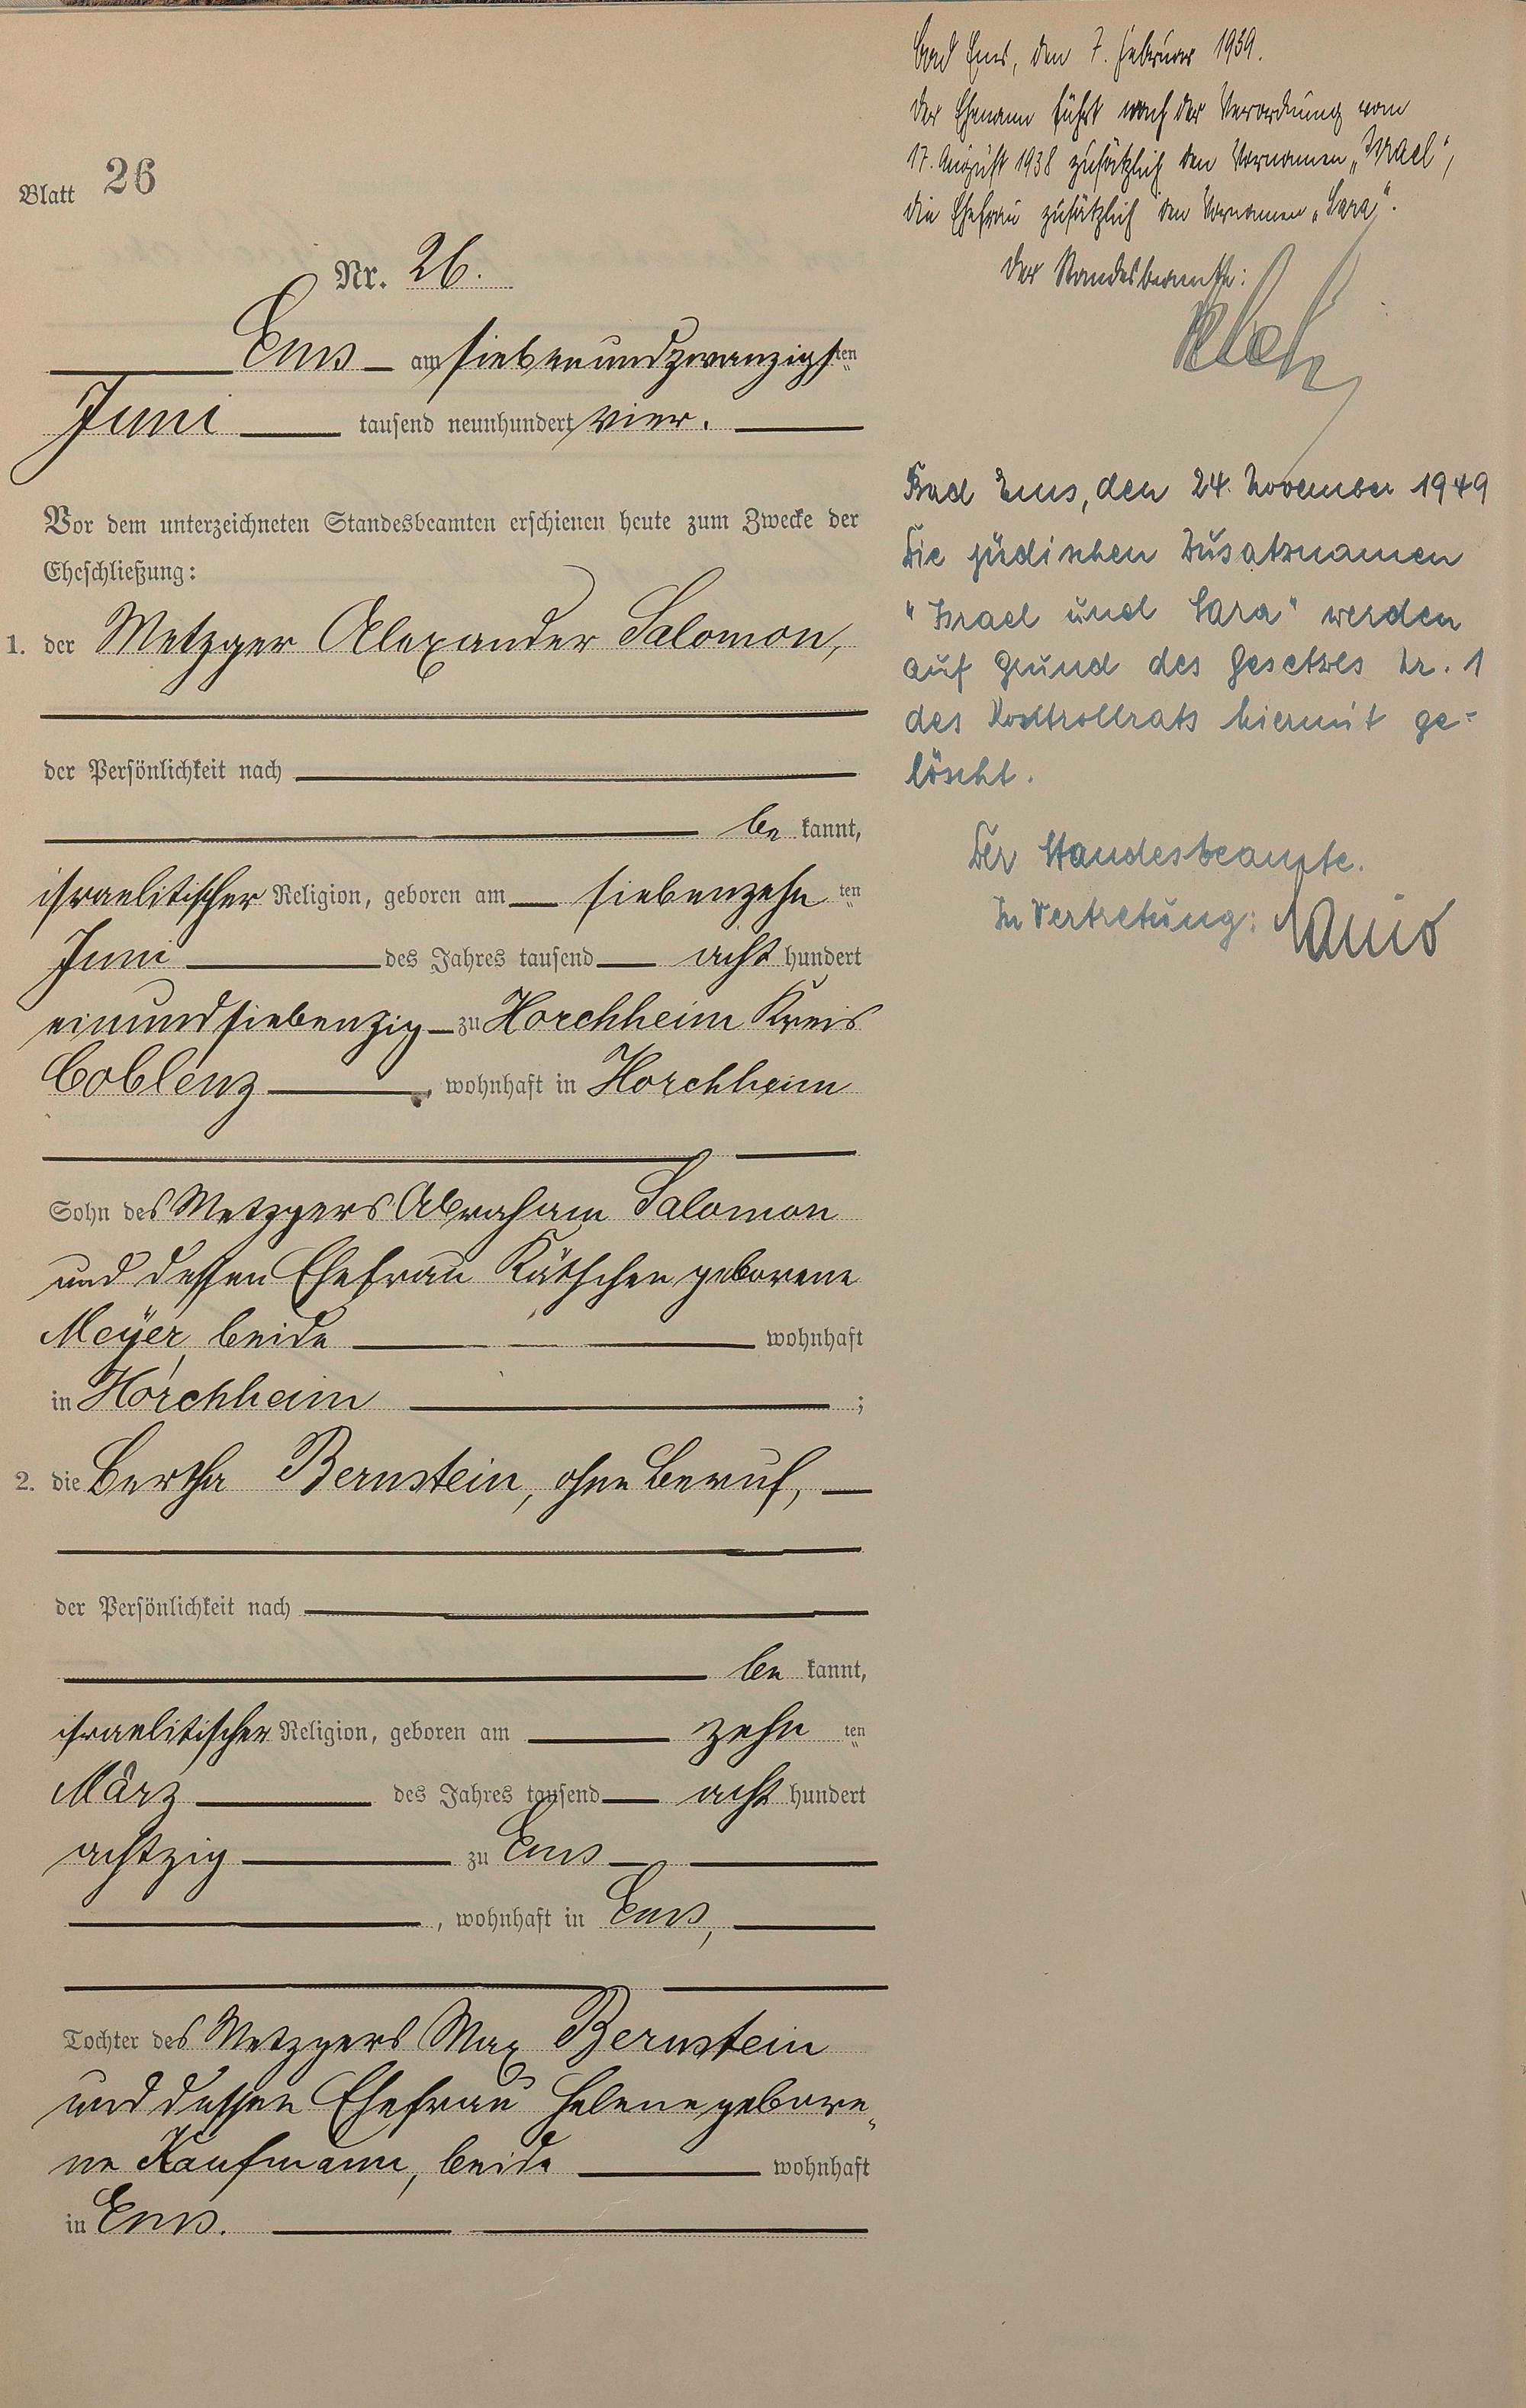 Blatt 26
Nr. 26.
Ems am siebenundzwanzigsten
Juni tausend neunhundert vier.
Vor dem unterzeichneten Standesbeamten erschienen heute zum Zwecke der
Eheschließung:
1. der Metzger Alexander Salomon,
der Persönlichkeit nach
be kannt,
israelitischer Religion, geboren am siebenzehn ten
Juni des Jahres tausend acht hundert
einundsiebenzig zu Horchheim Kreis
Coblenz, wohnhaft in Horchheim
Sohn des Metzgers Abraham Salomon
und dessen Ehefrau Kätchen geborene
Meyer, beide wohnhaft
in Horchheim ;
2. die Bertha Bernstein, ohne Beruf,
der Persönlichkeit nach
be kannt,
israelitischer Religion, geboren am zehn ten
März des Jahres tausend acht hundert
achtzig zu Ems
, wohnhaft in Ems,
Tochter des Metzgers Max Bernstein
und dessen Ehefrau Helene gebore-
ne Kaufmann, beide wohnhaft
in Ems.
Bad Ems, den 7. Februar 1939.
Der Ehemann führt nach der Verordnung vom
17. August 1938 zusätzlich den Vornamen „Israel“,
die Ehefrau zusätzlich den Vornamen „Sara“.
Der Standesbeamte:
Bad Ems, den 24. November 1949
Die jüdischen Zusatznamen
"Israel und Sara" werden
auf Grund des Gesetzes Nr. 1
des Kontrollrats hiermit ge-
löscht.
Der Standesbeamte.
In Vertretung: